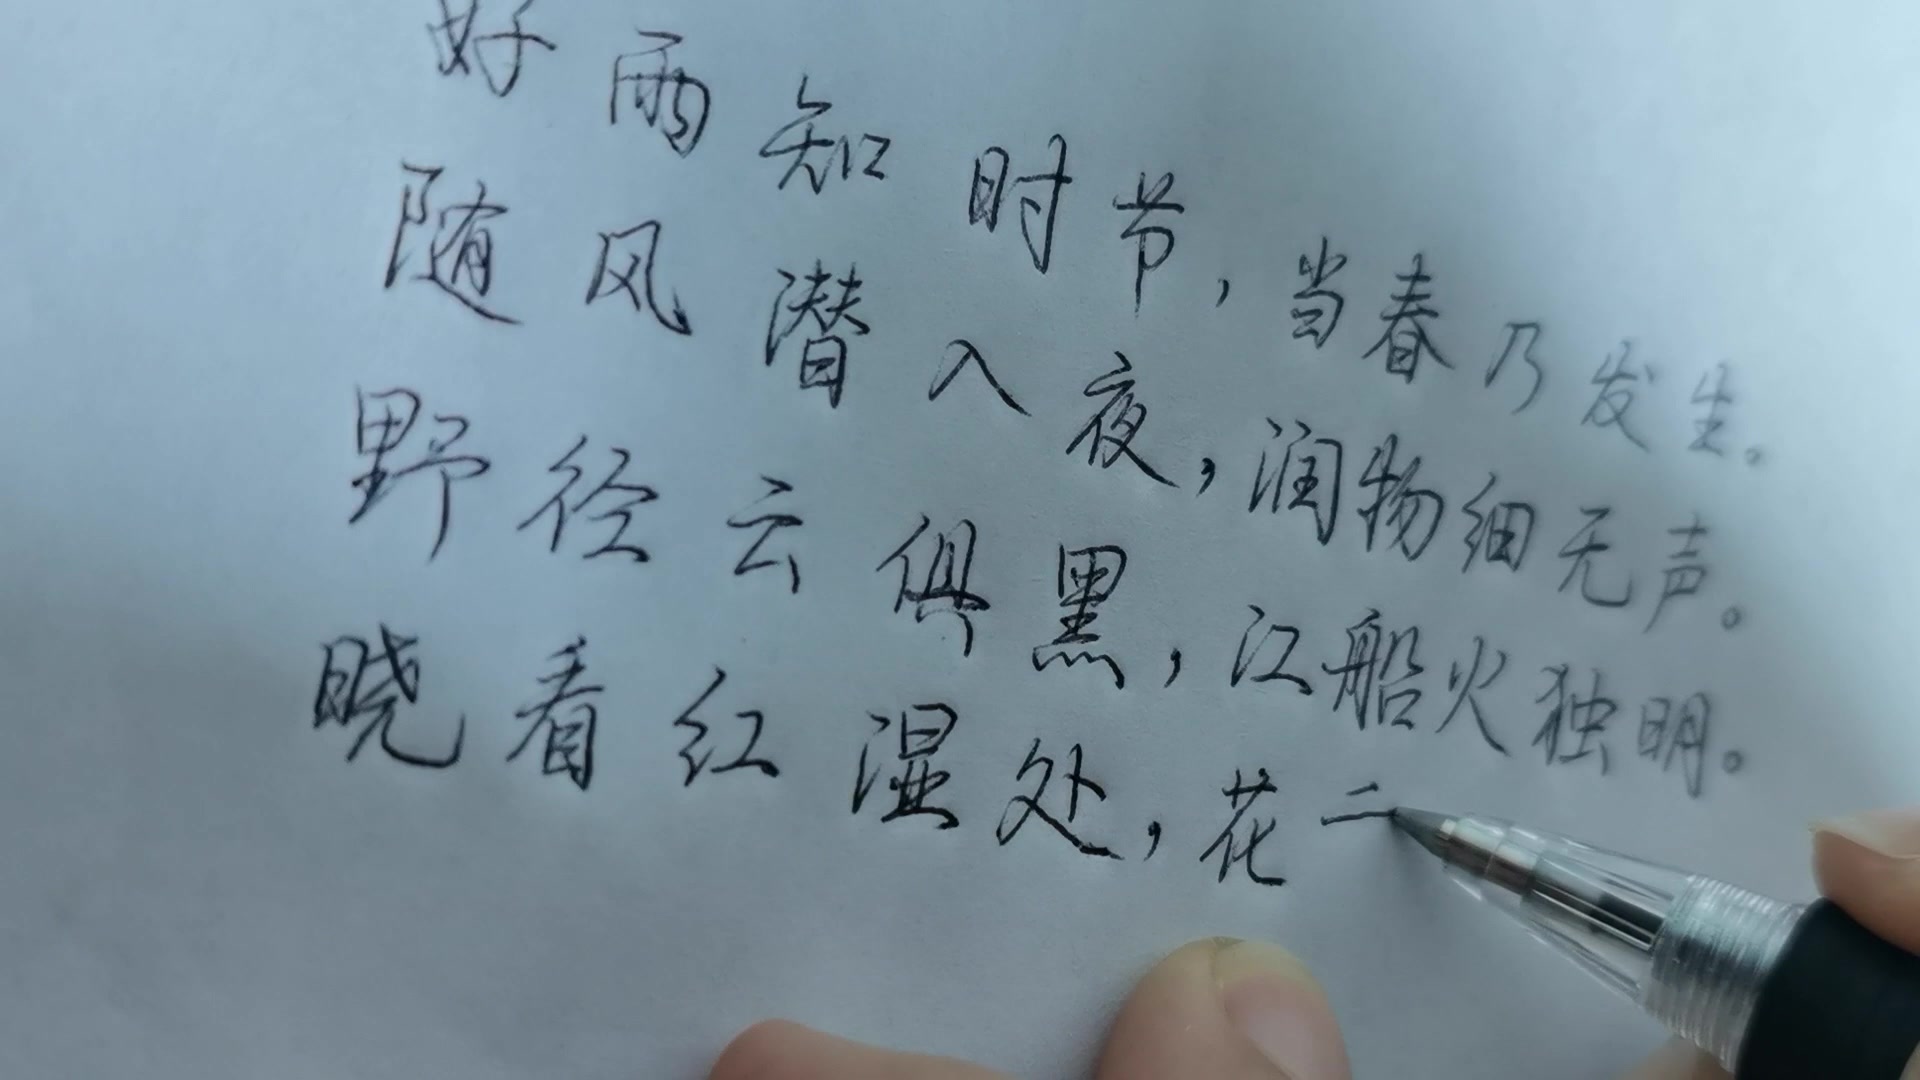 好雨知时节，当春乃发生。
随风潜入夜，润物细无声。
野径云俱黑，江船火独明。
晓看红湿处，花二